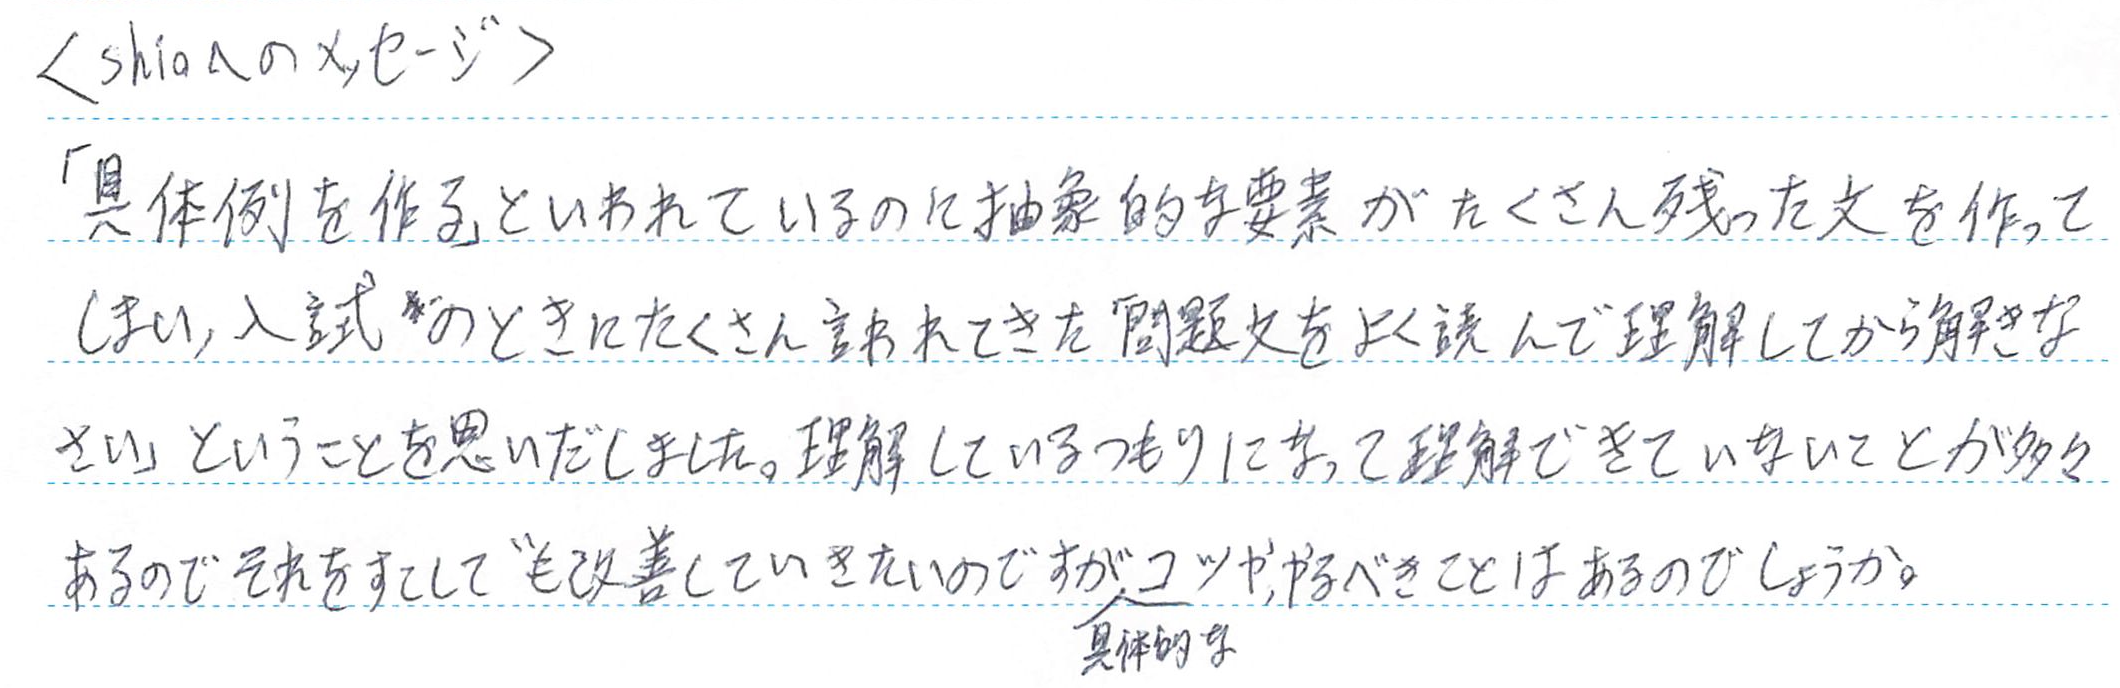 <shioへのメッセージ>
「具体例を作る」といわれているのに抽象的な要素がたくさん残った文を作って
しまい,入試のときにたくさん言われてきた「問題文をよく読んで理解してから解きな
さい」ということを思いだしました。理解しているつもりになって理解できていないことが多々
あるのでそれをすこしでも改善していきたいのですが,コツや,やるべきことはあるのでしょうか。
具体的な